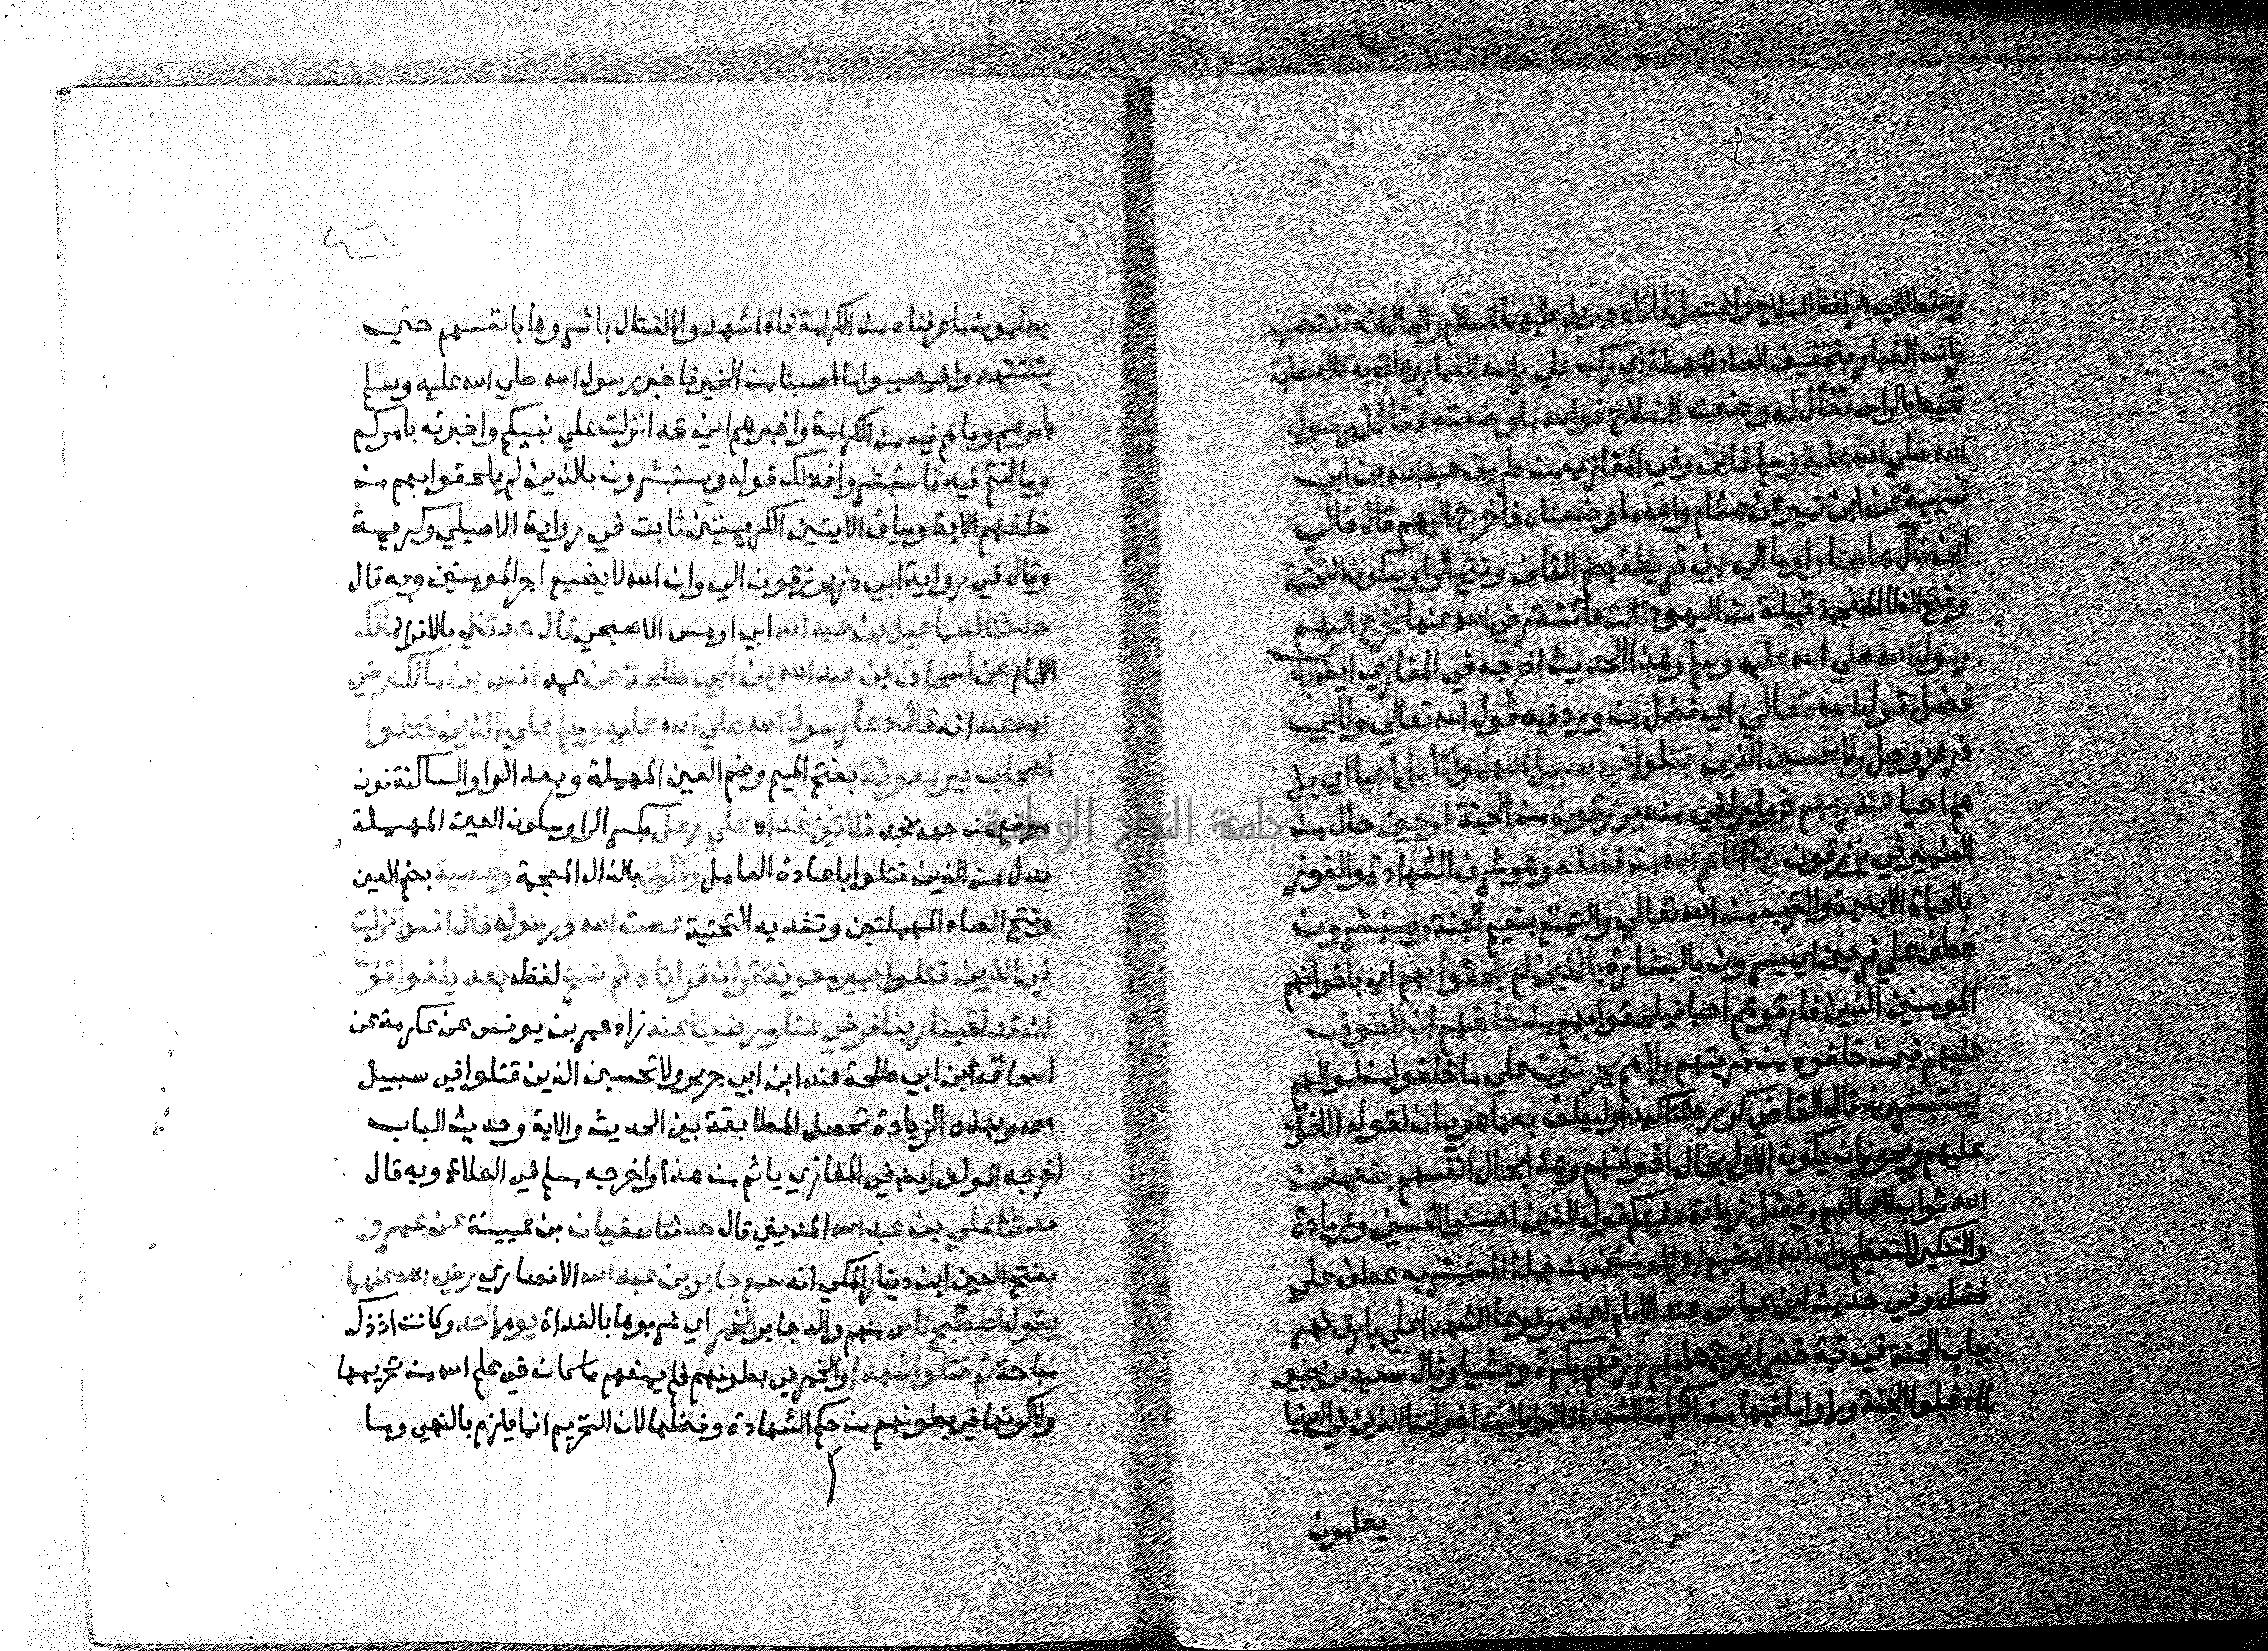 وسقط لابي ذر لفظ السلاح واغتسل فاتاه جبريل عليهما السلام والحال انه قد عصب
راسه الغبار بتخفيف الصاد المهملة اي ركب علي راسه الغبار وعلق به كالعصابة
تحيط بالراس فقال له وضعت السلاح فوالله ما وضعته فقال له رسول
الله صلي الله عليه وسلم فاين وفي المغازي من طريق عبد الله بن ابي
شيبة عن ابن نمير عن هشام والله ما وضعناه فاخرج اليهم قال فالي
اين قال هاهنا واوما الي بني قريظة بضم القاف وفتح الرا وسكون التحتية
وفتح الظا المعجمة قبيلة من اليهود قالت عائشة رضي الله عنها فخرج اليهم
رسول الله صلي الله عليه وسلم وهذا الحديث اخرجه في المغازي ايضا باب
فضل قول الله تعالي اي فضل من ورد فيه قول الله تعالي ولابي
ذر عز وجل ولا تحسبن الذين قتلوا في سبيل الله امواتا بل احيا اي بل
هم احيا عند ربهم ذو زلفي منه يرزقون من الجنة فرحين حال من
الضمير في يرزقون بما اتاهم الله من فضله وهو شرف الشهادة والفوز
بالحياة الابدية والقرب من الله تعالي والتمتع بنعيم الجنة ويستبشرون
عطف علي فرحين اي يسرون بالبشارة بالذين لم يلحقوا بهم اي باخوانهم
المومنين الذين فارقوهم احيا فيلحقوا بهم من خلفهم ان لا خوف
عليهم فيمن خلفوه من ذريتهم ولا هم يحزنون علي ما خلفوا من اموالهم
يستبشرون قال القاضي كرره للتاكيد او ليعلق به ما هو بيان لقوله الا خوف
عليهم ويجوز ان يكون الاول بحال اخوانهم وهذا بحال انفسهم بنعمة من
الله ثواب لاعمالهم وفضل زيادة عليهم كقوله للذين احسنوا الحسني وزيادة
والتنكير للتعظيم وان الله لا يضيع اجر المومنين من جملة المستبشر به عطف علي
فضل وفي حديث ابن عباس عند الامام احمد مرفوعا الشهدا علي بارق نهر
بباب الجنة في قبة خضرا يخرج عليهم رزقهم بكرة وعشيا وقال سعيد بن جبير
لما دخلوا الجنة وراوا ما فيها من الكرامة للشهدا قالوا يا ليت اخواننا الذين في الدنيا
يعلمون
٤٦
يعلمون ما عرفناه من الكرامة فاذا شهدوا القتال باشروها بانفسهم حتي
يستشهدوا فيصيبوا ما اصبنا من الخير فاخبر رسول الله صلي الله عليه وسلم
بامرهم وما هم فيه من الكرامة واخبرهم اني قد انزلت علي نبيكم واخبرته بامركم
وما انتم فيه فاستبشروا فذلك قوله ويستبشرون بالذين لم يلحقوا بهم من
خلفهم الاية وسياق الايتين الكريمتين ثابت في رواية الاصيلي وكريمة
وقال في رواية ابي ذر يرزقون الي وان الله لا يضيع اجر المومنين وبه قال
حدثنا اسماعيل بن عبد الله ابي اويس الاصبحي قال حدثني بالافراد مالك
الامام عن اسحاق بن عبد الله بن ابي طلحة عن عمه انس بن مالك رضي
الله عنه انه قال دعا رسول الله صلي الله عليه وسلم علي الذين قتلوا
اصحاب بير معونة بفتح الميم وضم العين المهملة وبعد الواو الساكنة نون
موضع من جهة نجد ثلاثين غداة علي رعل بكسر الرا وسكون العين المهملة
بدل من الذين قتلوا باعادة العامل وذكوان بالذال المعجمة وعصية بضم العين
وفتح الصاد المهملتين وتشديد التحتية عصت الله ورسوله قال انس انزلت
في الذين قتلوا ببير معونة قران قراناه ثم نسخ لفظه بعد بلغوا قومنا
ان قد لقينا ربنا فرضي عنا ورضينا عنه زاد عمر بن يونس عن عكرمة عن
اسحاق بن ابي طلحة عند ابن ابي جرير ولا تحسبن الذين قتلوا في سبيل
الله وبهذه الزيادة تحصل المطابقة بين الحديث والاية وحديث الباب
اخرجه المولف ايضا في المغازي باتم من هذا واخرجه مسلم في الصلاة وبه قال
حدثنا علي بن عبد الله المديني قال حدثنا سفيان بن عيينة عن عمرو
بفتح العين ابن دينار المكي انه سمع جابر بن عبد الله الانصاري رضي الله عنهما
يقول اصطبح ناس منهم والد جابر الخمر اي شربوها بالغداة يوم احد وكانت اذ ذاك
مباحة ثم قتلوا شهدا والخمر في بطونهم فلم يمنعهم ما كان في علم الله من تحريمها
ولا كونها في بطونهم من حكم الشهادة وفضلها لان التحريم انما يلزم بالنهي وما
جامعة النجاح الوطنية